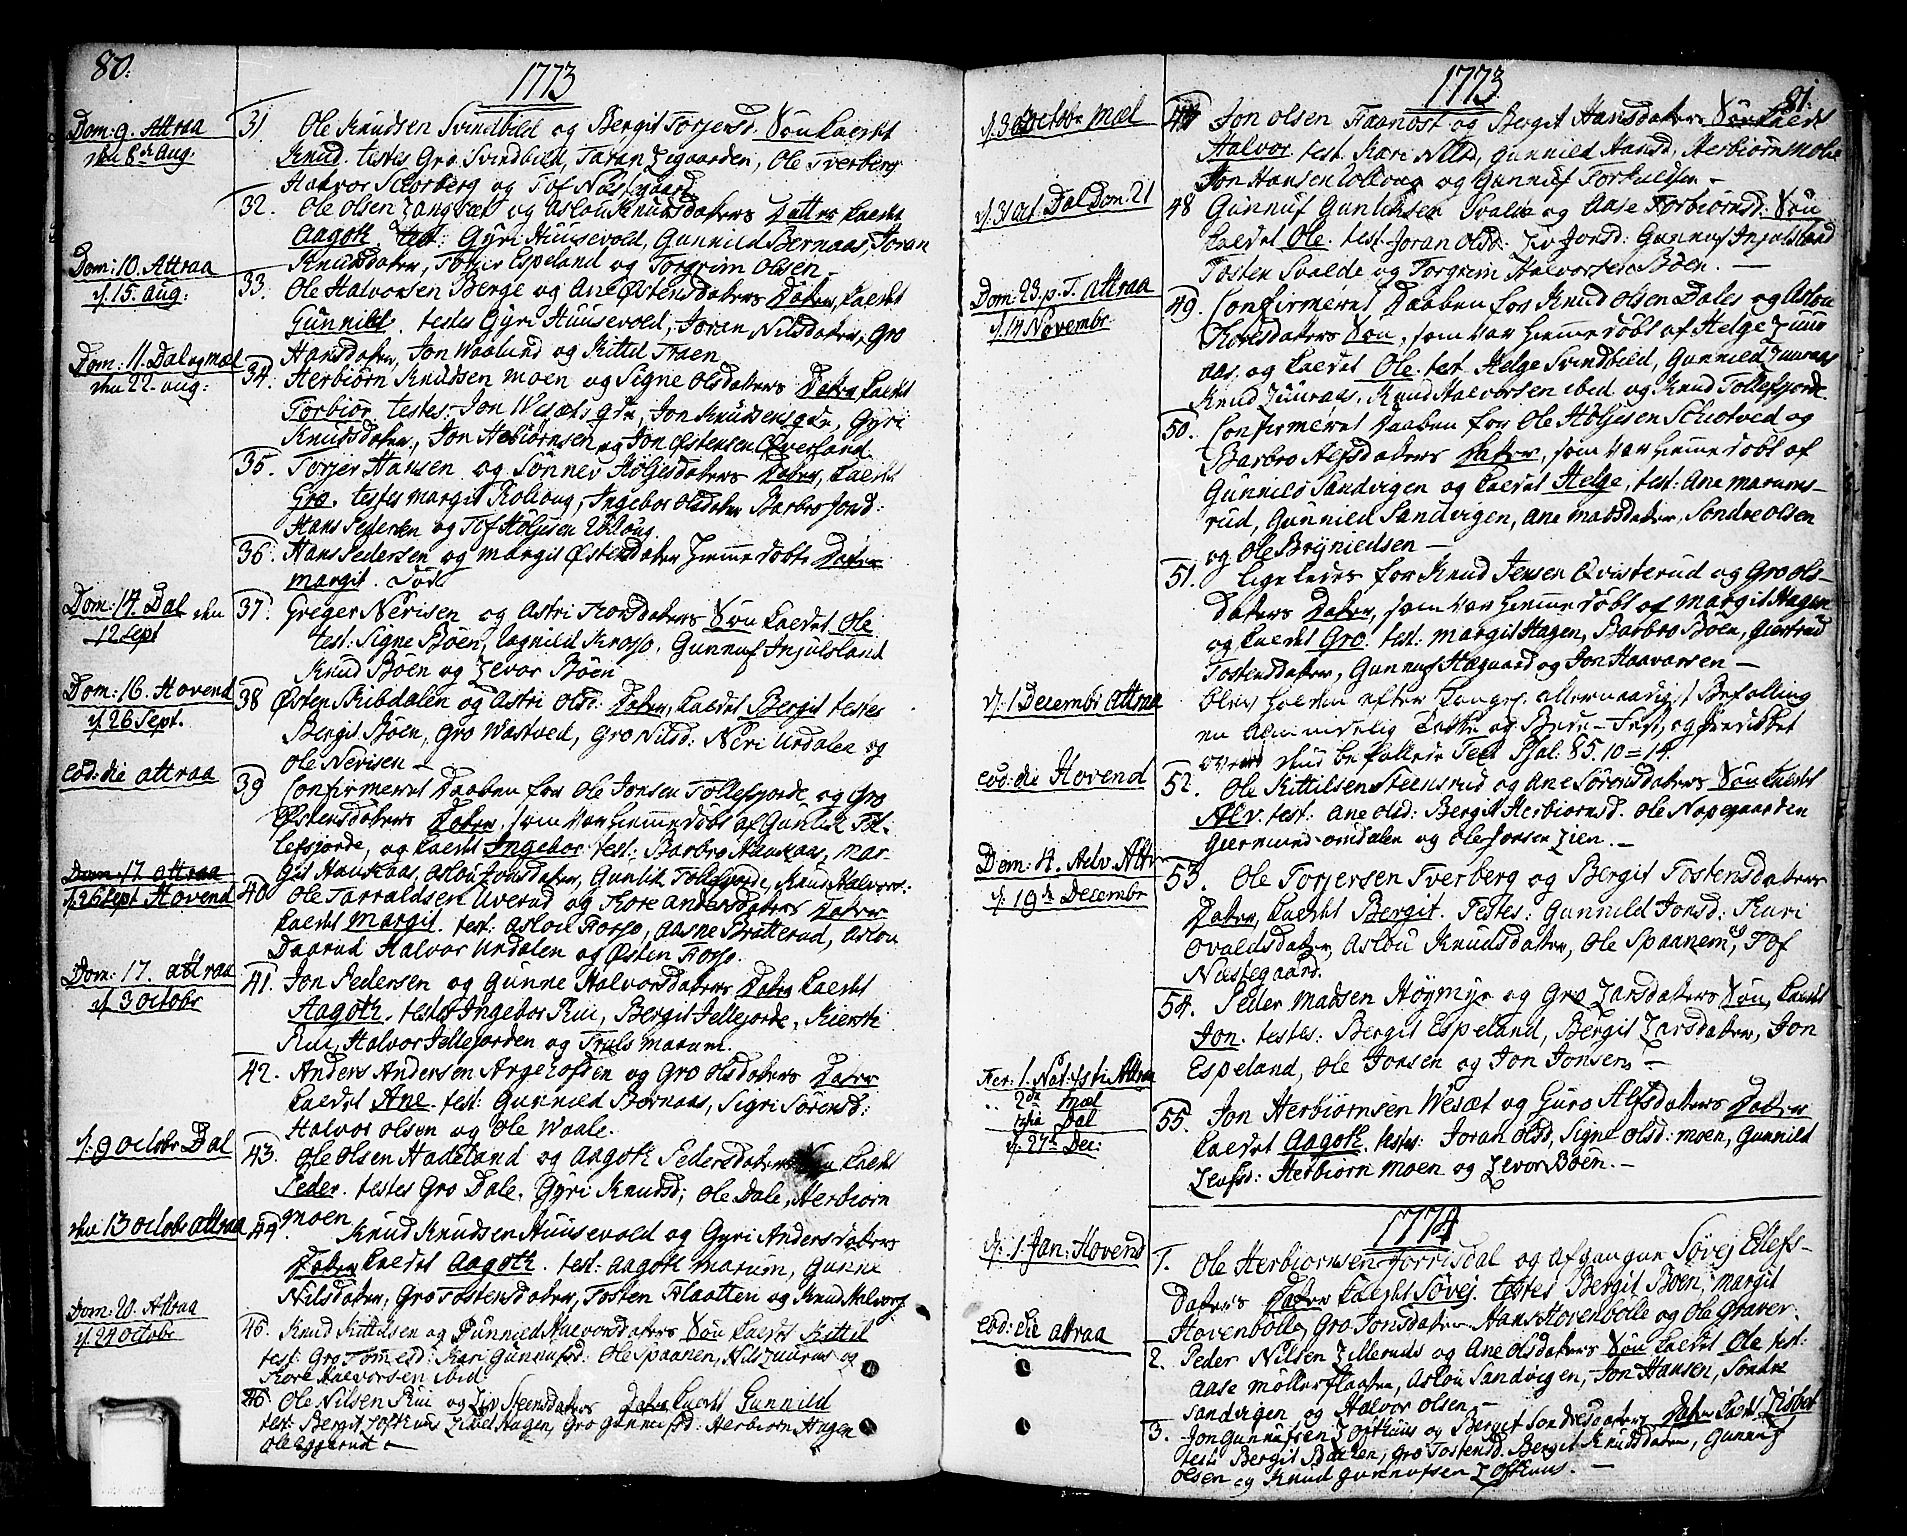 80.
1773
Dom: 9. Attraa
den 8de Aug.
31 Ole Knudsen Svindbild og Bergit Torjersd. Søn kaldt
Knud. testes Gro Svindbild, Taran Ligaarden, Ole Tverberg
Halvor Schorberg og Tof Næstgaard
32. Ole Olsen Langsæt og Aslou Knudsdaters Datter kaldt
Aagoth, test: Gyri Huusevold, Gunnild Bernaas, Joran
Knudsdater, Torjer Espeland og Torgrim Olsen
Dom: 10. Attraa
d. 15. Aug:
33. Ole Halvorsen Berge og Ane Østensdaters Dater, kaldt
Gunnild. testes Gyri Huusevold, Joran Nilsdater, Gro
Hansdater, Jon Waalund og Kittil Traen
Dom: 11. Dal og Mæl
den 22. Aug:
34. Herbiørn Knudsen Moen og Signe Olsdaters Dater kaldt
Torbiør. testes. Jon Wesæt, Jon Knudsens, Gyri
Knudsdater, Jon Herbiørnsen og Jon Østensen Øverland
35. Torjer Hansen og Sønnev Høljesdaters Dater, kaldt
Gro. testes Margit Kolloug, Ingebor Olsdater Barbro Jonsd:
Hans Pedersen og Tof Høljesen
36. Hans Pedersen og Margit Østensdater hiemmedøbte Dater
Margit. død.
Dom: 14. Dal den
12 Sept
37. Greger Nerisen og Astri Torsdaters Søn kaldet Ole
test: Signe Bøen, Ragnild Krosso, Gunnuf Injulsland
Knud Bøen og Levor Bøen
Dom: 16. Hovend
d. 26 Sept.
38 Østen Ribdalen og Astri Olsd: Dater, kaldet Bergit testes
Bergit Bøen, Gro Wæstved, Gro Nilsd: Neri Urdalen og
Ole Nerisen
Eod: die Attraa
39 Confirmeret Daaben for Ole Jonsen Tollefsjorde og Gro
Østensdaters Dater, som var hiemmedøbt af Gunlik Tol-
lefsjorde, og kaldt Ingebor. test: Barbro Haukaas, Mar-
git Haukaas, Aslou Jonsdater, Gunlik Tollefsjorde, Knud Halvors:
Dom: 17. Attraa
d. 26 Sept Hovend
40 Ole Tarraldsen Uverud og Tore Andersdaters Dater
kaldt Margit. test: Aslou Forso, Aasne Britterud, Aslou
Daarud Halvor Urdalen og Østen Forso.
Dom: 17. Attraa
d. 3 Octobr
41. Jon Pedersen og Gunne Halvorsdaters Dater kaldt
Aagoth. testes Ingebor Rui, Bergit Jellefjorde, Kiersti
Rui, Halvor Jellefjorden og Truls Marum.
42. Anders Andersen Argelofden og Gro Olsdaters Dater
kaldet Ane. test: Gunnild Bernaas, Sigri Sørensd:
Halvor Olsen og Ole Waale.
d. 9 Octobr Dal
43. Ole Olsen Hadeland og Aagoth Pedersdaters Søn kaldt
Peder. testes Gro Dale, Gyri Knudsd; Ole Dale, Herbiørn
Moen
den 13 Octobr Attraa
44. Knud Knudsen Huusevold og Gyri Andersdaters
Dater kaldet Aagoth. test: Aagoth Marum, Gunne
Nilsdater, Gro Tostensdater, Tosten Flaatten og Knud Halvors.
Dom: 20. Attraa
d. 24 Octobr
45. Knud Kittilsen og Gunnild Halvorsdaters Søn kaldt Kittil
test: Gro Tommesd: Kari Gunnufsd: Ole Spaanen, Nils Luuraas og
Tore Halvorsen ibid:
46 Ole Nilsen Rui og Liv Steensdaters Dater kaldt Gunnild
test: Bergit Lofthuus Hagen, Gro Gunnufsd: Herbiørn Hagen
Ole Eggerud
81.
1773
d. 30 Octobr Mæl
47 Jon Olsen Faanost og Bergit Hansdaters Søn kaldt
Halvor. test. Kari Nilsd, Gunnild Hansd, Herbiørn Molie
Jon Hansen Kollong og Gunnuf Torkielsen
d. 31 Oct. Dal Dom: 21
48 Gunnuf Gunliksen Svalde og Aase Torbiørnsd: Søn
kaldet Ole: test: Joran Olsd: Liv Jonsd: Gunnuf Injulsland
Tosten Svalde og Torgrim Halvorsen Bøen.
Dom: 23. p. T. Attraa
d. 14 Novembr
49. Confirmeret Daaben for Knud Olsen Dales og Aslou
Torsdaters Søn, som var hiemmedøbt af Helge Luur
aas, og kaldet Ole. test Helge Svindbild, Gunnild Luuraas
Knud Luuraas, Knud Halvorsen ibid og Knud Tollefsjorde
50. Confirmeret Daaben for Ole Høljesen Schotved og
Barbro Alfsdaters Dater, som var hiemmedøbt af
Gunnild Sandvigen og kaldet Helge, test: Ane Marums-
rud, Gunnild Sandvigen, Ane Matsdater, Søndre Olsen
og Ole Brynieldsen
51. Ligeledes for Knud Jensen Qvisterud og Gro Ols-
daters Dater, som var hiemmedøbt af Margit Hagen
og kaldet Gro. test: Margit Hagen, Barbro Bøen, Giertrud
Tostensdater, Gunnuf Hægaard og Jon Haavarsen
d. 1 Decembr Attraa
Blev holden efter Konges. allernaadigst Befalling
en almindelig Takke og Bede-Fest, og prædiket
over den befallede Text Psal: 85. 10=14.
Eod: die Hovend
52. Ole Kittilsen Steensrud og Ane Sørensdaters Søn kaldt
Alv. test: Ane Olsd: Bergit Herbiørnsd. Ole Nøpegaarden
Giermund Omdalen og Ole Jonsen Lien.
Dom: 4. Adv. Attr
d. 19de Decembr
53. Ole Torjersen Tverberg og Bergit Tostensdaters
Dater, kaldt Bergit. Testes: Gunnild Jonsd: Kari
Ovaldsdater, Aslou Knudsdater, Ole Spaanem, og Tof
Næstegaard.
54. Peder Madsen Høymyr og Gro Larsdaters Søn kaldt
Jon. testes: Bergit Espeland, Bergit Larsdater, Jon
Espeland, Ole Jonsen og Jon Jonsen.
Fer: 1. Nat. Xsti Attraa
2da Mæl
3tia Dal
d. 27de Dec:
55. Jon Herbiørnsen Wesæt og Guro Alfsdaters Dater
kaldet Aagoth. testes: Joran Olsd, Signe Olsd: Moen, Gunnild
Leufsd: Herbiørn Moen og Levor Bøen.
1774
d. 1. Jan: Hovend
1. Ole Herbiørnsen Jorrisdal og afgangne Søvej Ellefs-
daters Dater kaldt Søvej. testes Bergit Bøen, Margit
Hovenbolle, Gro Jonsdater. Hans Hovenbolle og Ole Graver.
Eod: die Attraa
2. Peder Nilsen Lilleruds og Ane Olsdaters Søn kaldet Ole test:
Aase Møllerflaaten, Aslou Sandvigen, Jon Hansen, Søndre
Sandvigen og Halvor Olsen.
3. Jon Gunnufsen Lofthuus og Bergit Søndresdaters Dater kaldt Lisbet
test: Bergit Bakken, Gro Tostensd. Bergit Knudsdater, Gunnuf
Olsen og Knud Gunnufsen Lofthuus.